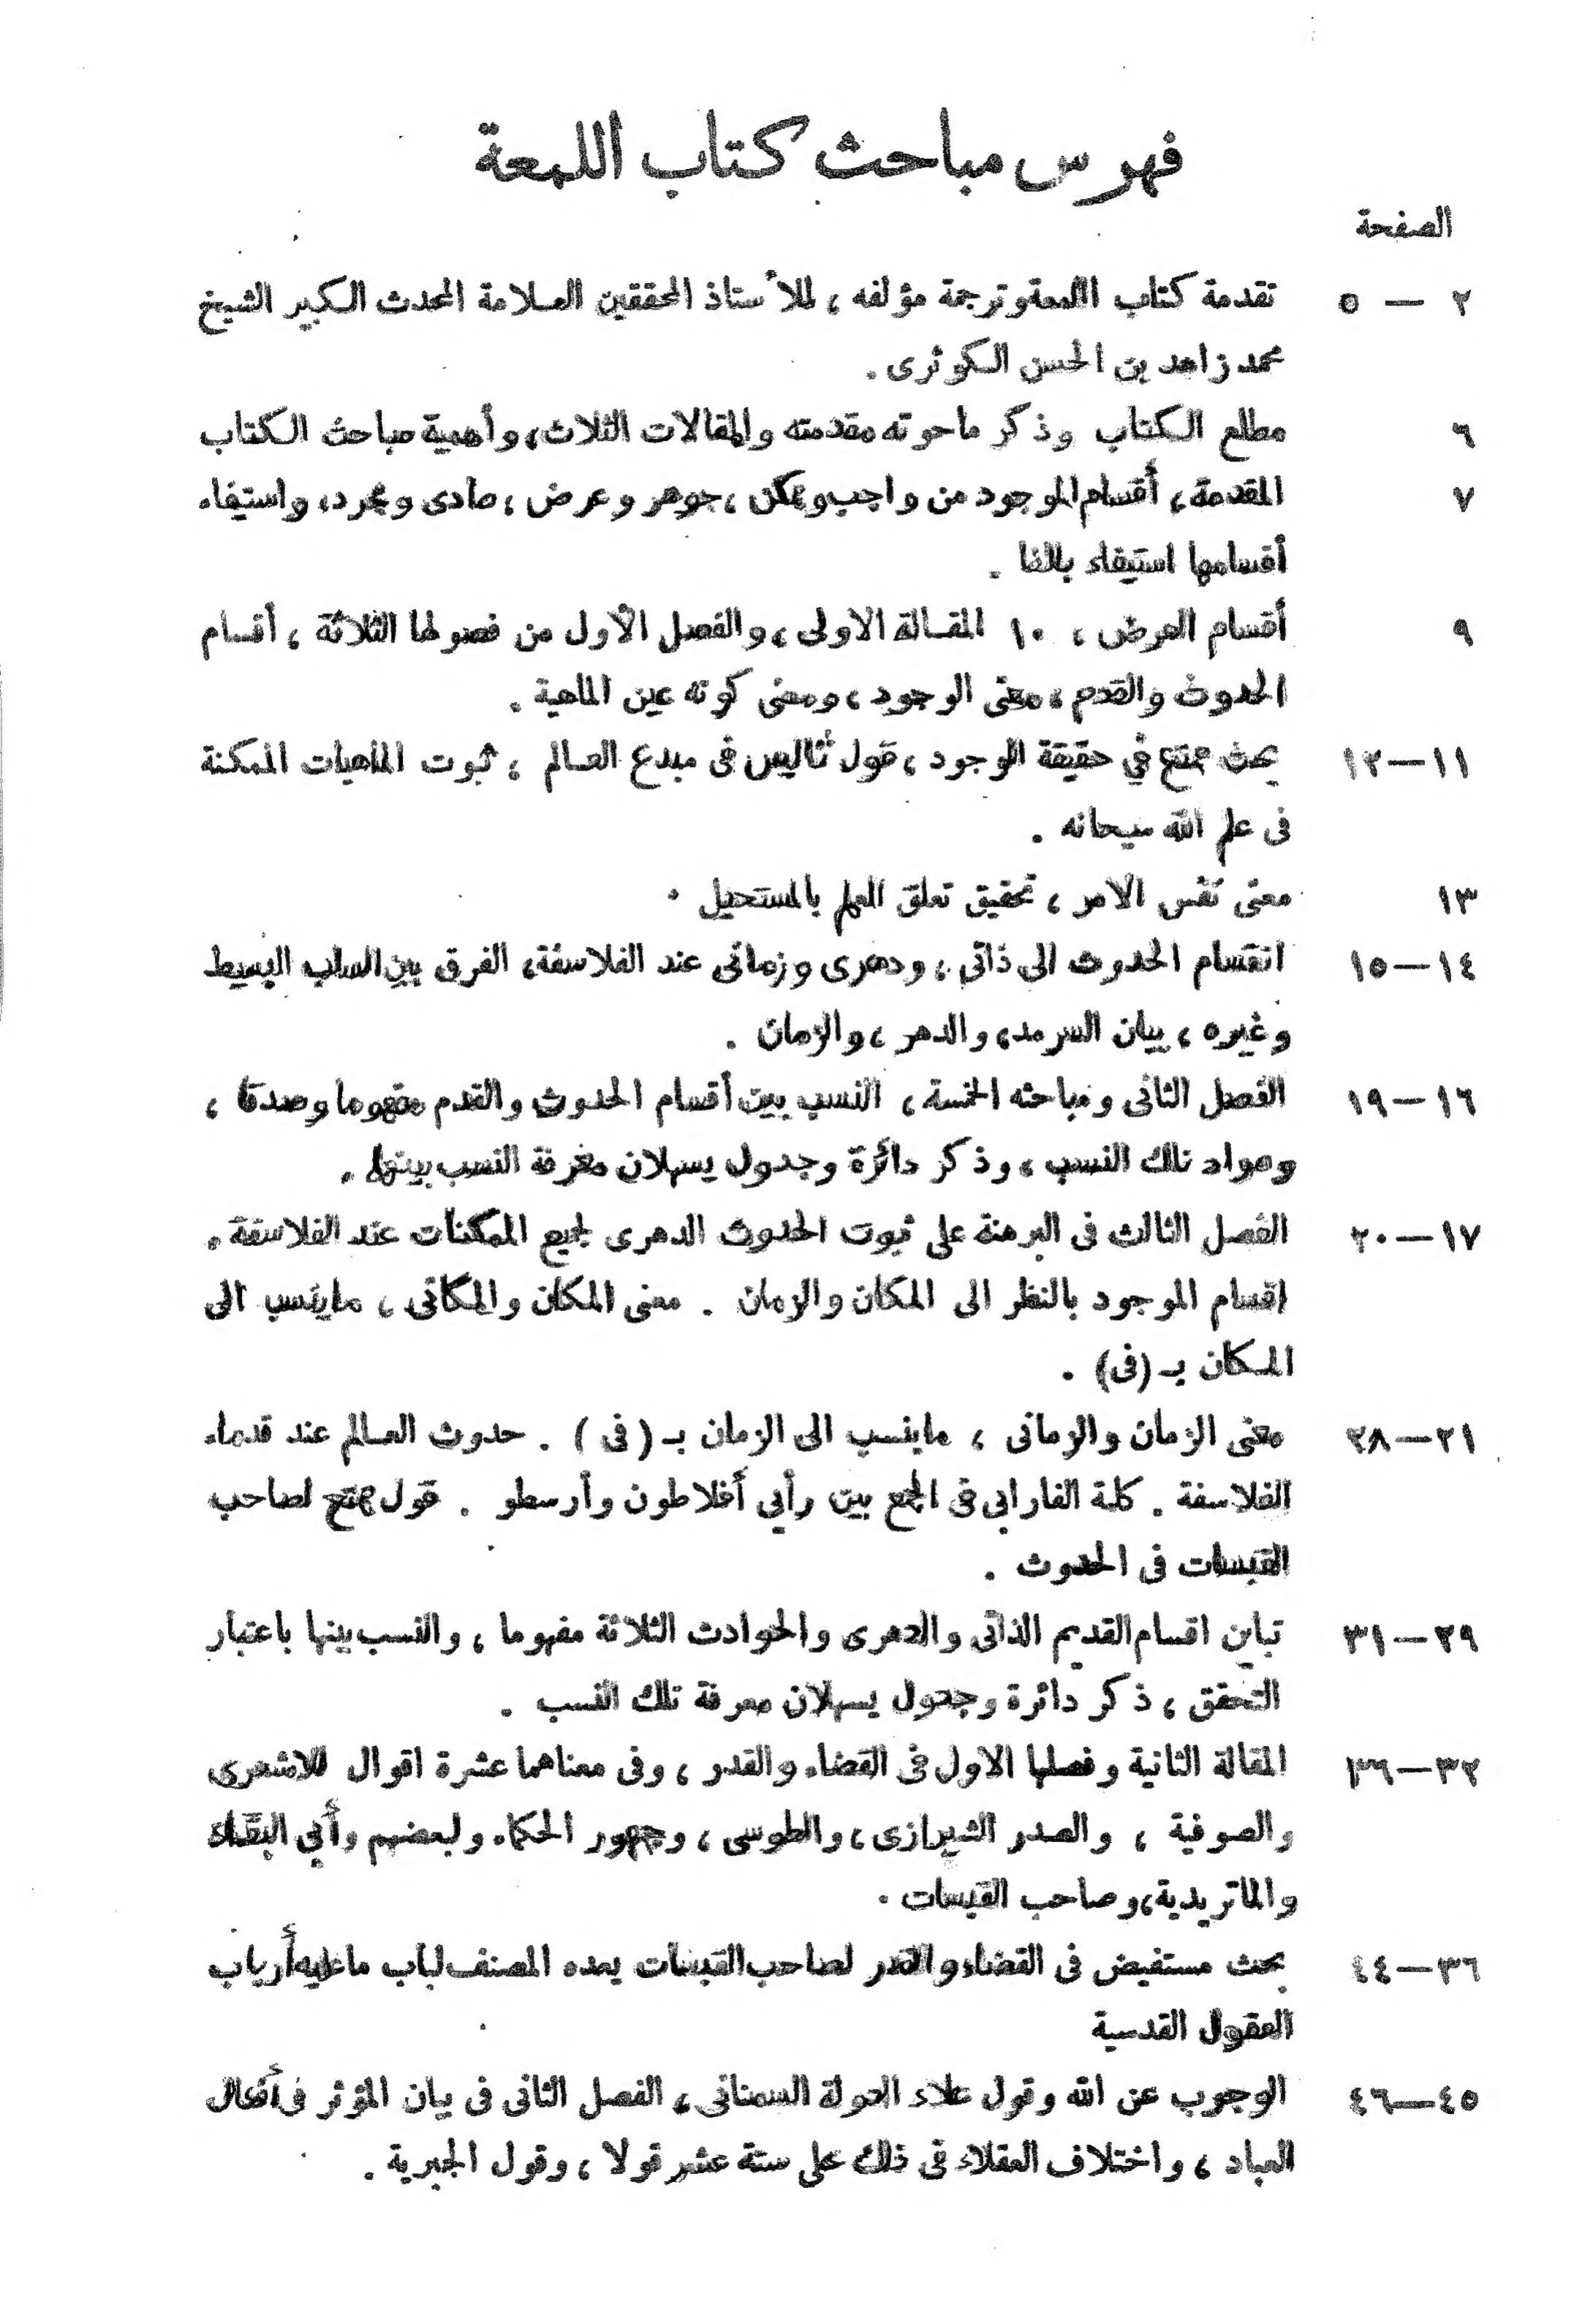 فهرس مباحث كتاب اللمعة
الصفحة
٢ — ٥ تقدمة كتاب اللمعة وترجمة مؤلفه ، للأستاذ المحققين العلامة المحدث الكبير الشيخ
محمد زاهد بن الحسن الكوثرى .
٦ مطلع الكتاب وذكر ماحوته مقدمته والمقالات الثلاث، وأهمية مباحث الكتاب
٧ المقدمة، أقسام الموجود من واجب وممكن ، جوهر وعرض ، مادى ومجرد، واستيفاء
أقسامها استيفاء بالغا .
٩ أقسام العرض ، ١٠ المقالة الاولى ، والفصل الأول من فصولها الثلاثة ، أقسام
الحدوث والقدم ، معنى الوجود ، ومعنى كونه عين الماهية .
١١—١٢ بحث ممتع في حقيقة الوجود ، قول ثاليس فى مبدع العالم ، ثبوت الماهيات الممكنة
فى علم الله سبحانه .
١٣ معنى نفس الامر ، تحقيق تعلق العلم بالمستحيل .
١٤—١٥ انقسام الحدوث الى ذاتى ، ودهرى وزمانى عند الفلاسفة، الفرق بين السلب البسيط
وغيره ، بيان السرمد، والدهر ، والزمان .
١٦—١٩ الفصل الثانى ومباحثه الخمسة ، النسب بين أقسام الحدوث والقدم مفهوما وصدقا ،
ومواد تلك النسب ، وذكر دائرة وجدول يسهلان معرفة النسب بينها .
١٧—٢٠ الفصل الثالث فى البرهنة على ثبوت الحدوث الدهرى لجميع الممكنات عند الفلاسفة .
اقسام الموجود بالنظر الى المكان والزمان . معنى المكان والمكانى ، ماينسب الى
المكان بـ (فى) .
٢١—٢٨ معنى الزمان والزمانى ، ماينسب الى الزمان بـ ( فى ) . حدوث العالم عند قدماء
الفلاسفة . كلمة الفارابى فى الجمع بين رأيي أفلاطون وأرسطو . قول ممتع لصاحب
القبسات فى الحدوث .
٢٩—٣١ تباين اقسام القديم الذاتى والدهرى والحوادث الثلاثة مفهوما ، والنسب بينها باعتبار
التحقق ، ذكر دائرة وجدول يسهلان معرفة تلك النسب .
٣٢—٣٦ المقالة الثانية وفصلها الاول فى القضاء والقدر ، وفى معناهما عشرة اقوال للاشعرى
والصوفية ، والصدر الشيرازى ، والطوسى ، وجمهور الحكماء ولبعضهم وأبي البقاء
والماتريدية، وصاحب القبسات .
٣٦—٤٤ بحث مستفيض فى القضاء والقدر لصاحب القبسات يعده المصنف لباب ما عليه أرباب
العقول القدسية
٤٥—٤٦ الوجوب عن الله وقول علاء الدولة السمنانى ، الفصل الثانى فى بيان المؤثر فى أفعال
العباد ، واختلاف العقلاء فى ذلك على ستة عشر قولا ، وقول الجبرية .